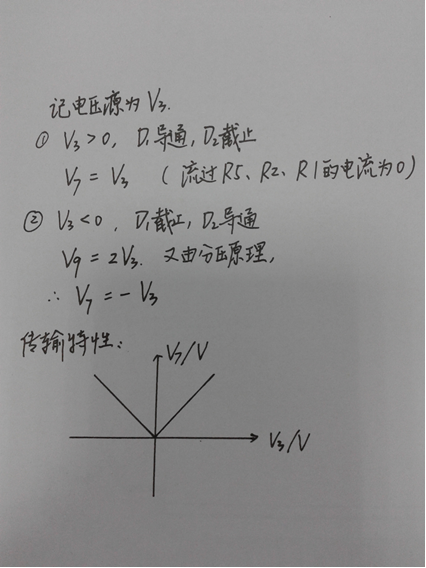 记电压源为V3.
① V3>0, D1导通, D2截止
V7 = V3 (流过R5、R2、R1的电流为0)
② V3<0, D1截止, D2导通
V9 = 2V3. 又由分压原理,
∴ V7 = - V3
传输特性:
V7/V
V3/V